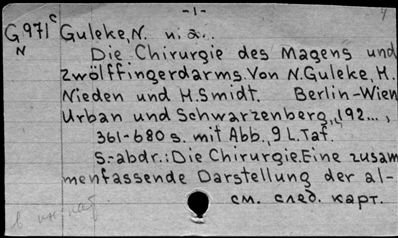 -1-
G971c Guleke, N. u. a..
N
Die Chirurgie des Magens und
zwölffingerdarms. Von N. Guleke, H.
Nieden und H. Smidt. Berlin-Wien
Urban und Schwarzenberg, 192...,
361-680 s. mit Abb., 9 L. Taf.
S.-abdr.: Die Chirurgie. Eine zusam
menfassende Darstellung der al-
см. след. карт.